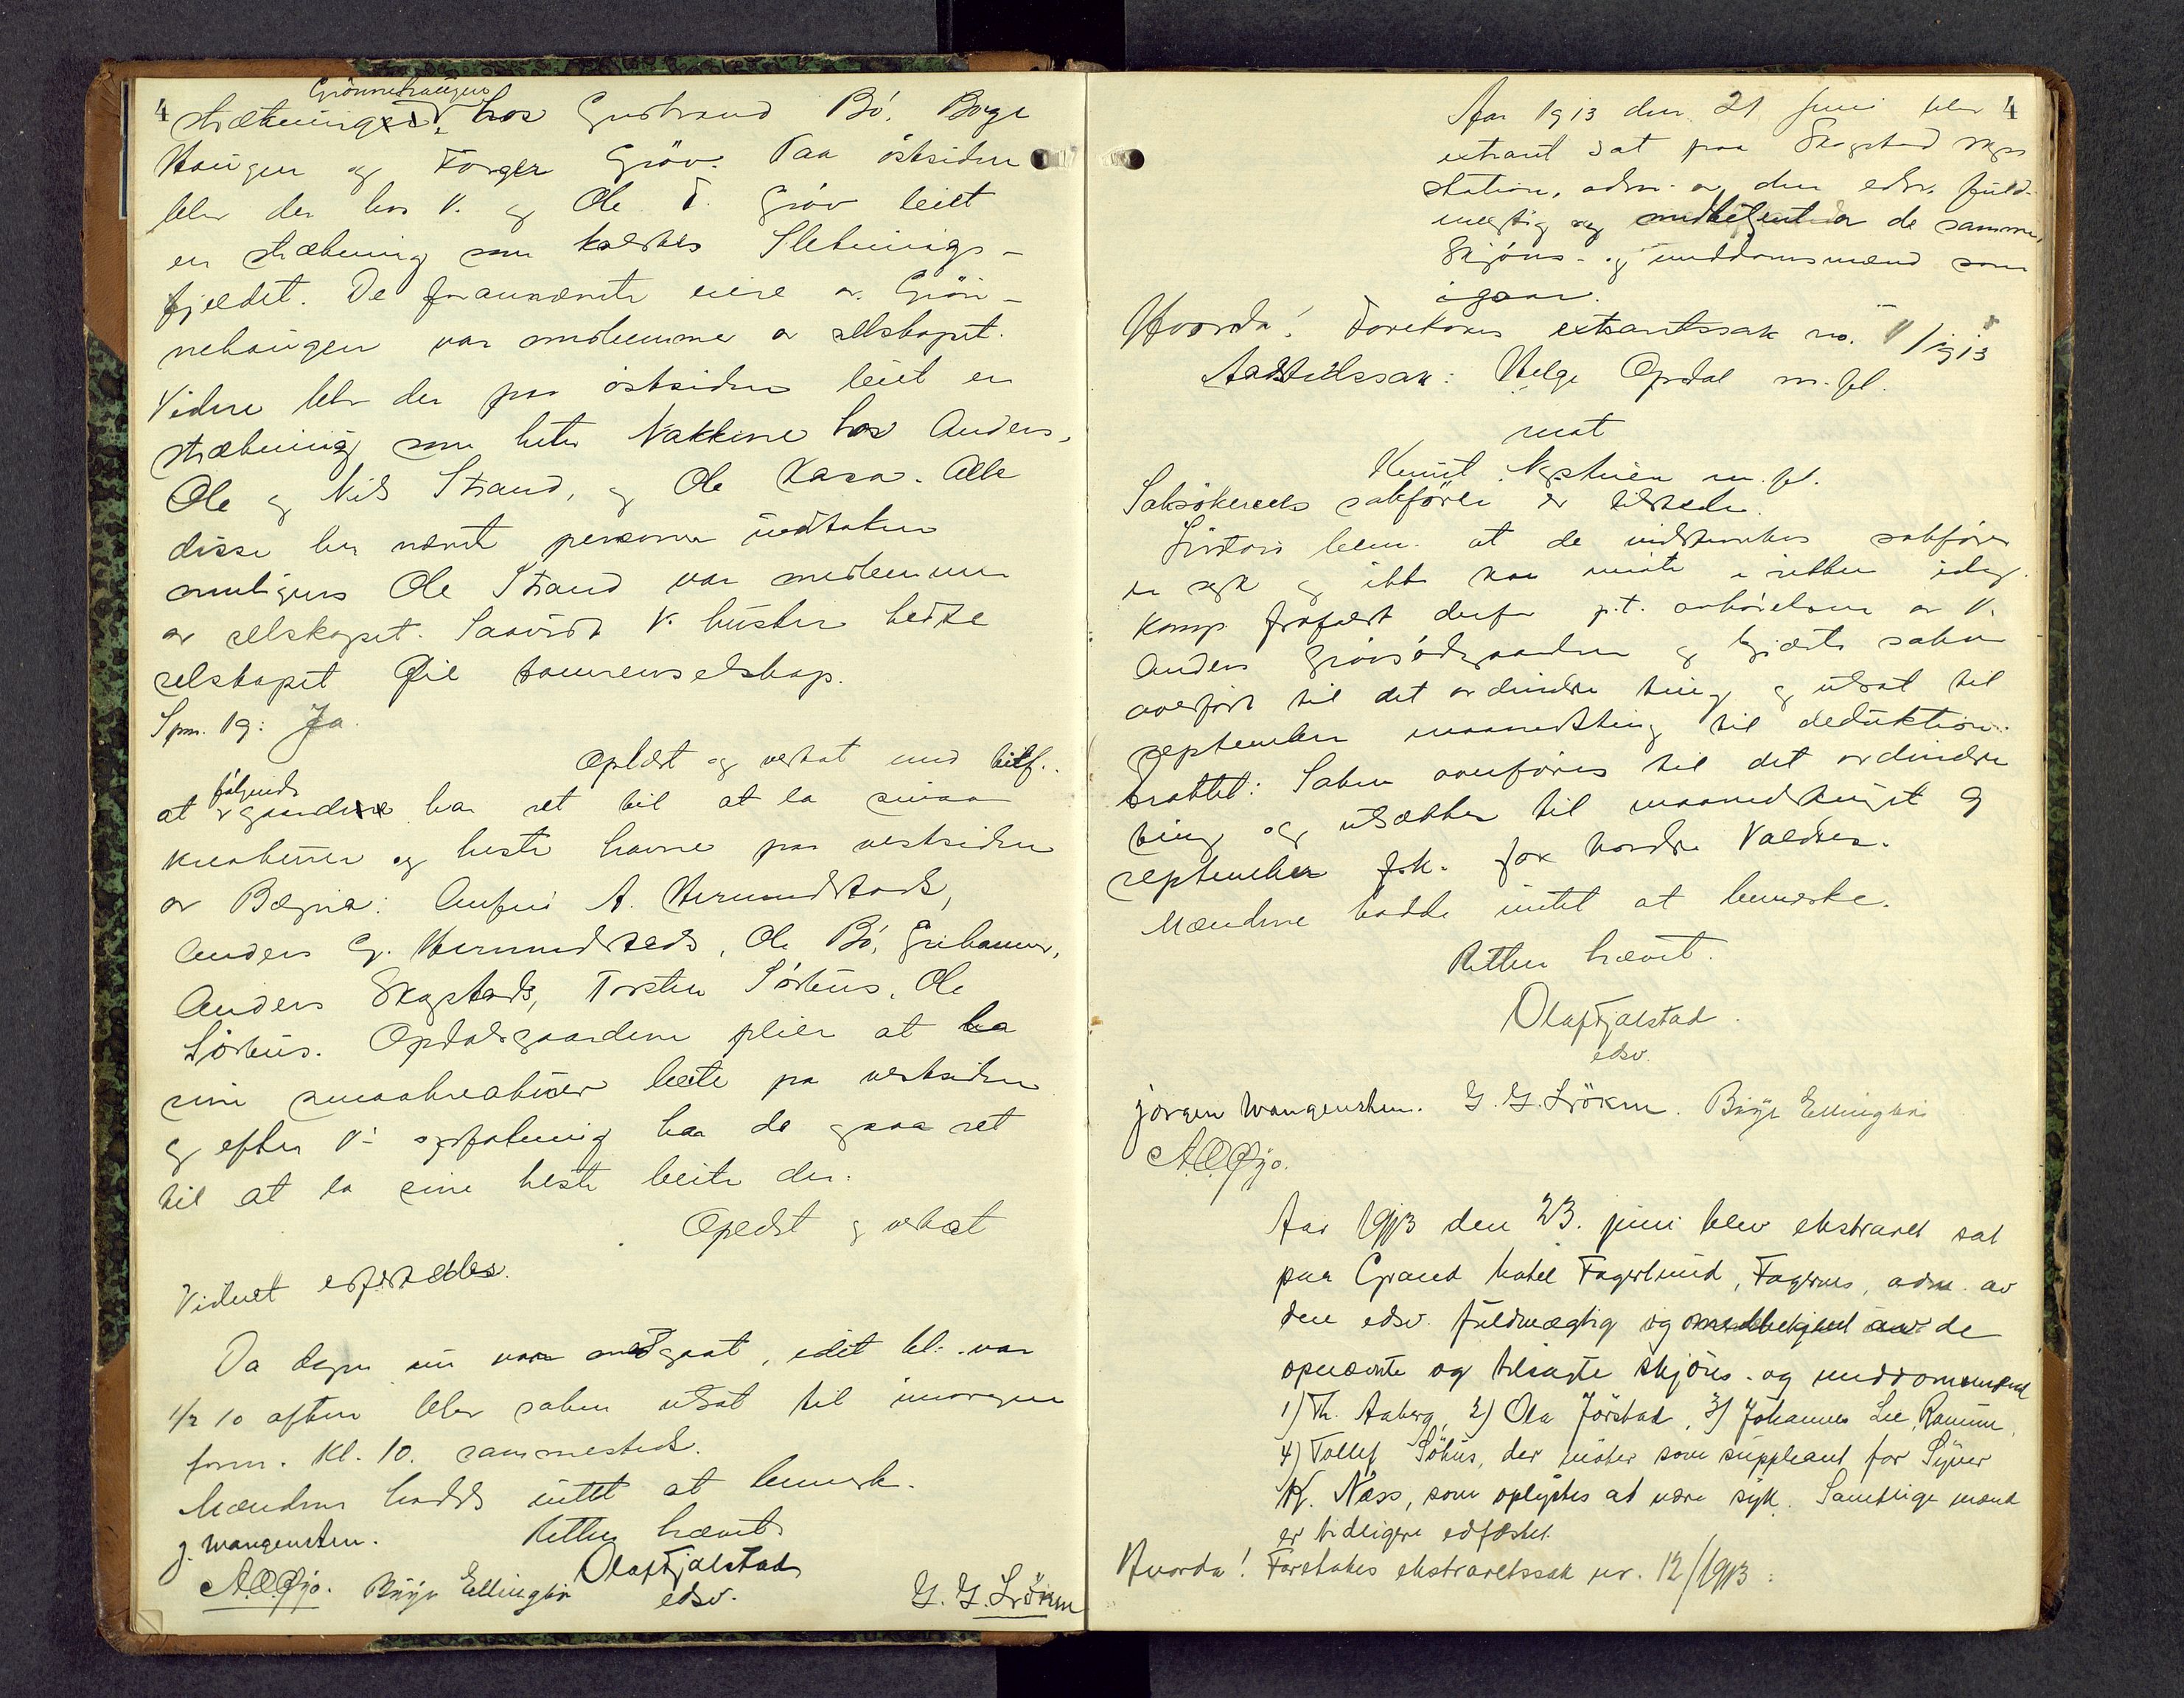 4
Grönnehaugen
strækningen hos Gudbrand Bö, Börge
Haugen og Torger Gröv. Paa östsiden
blev der hos V. og Ole T. Gröv leiet
en strækning som kaldtes Sletnings-
fjeldet. De forannævnte eiere av Grön-
nehaugen var medlemmer av selskapet.
Videre blev der paa östsiden leiet en
strækning som heter Nakkene hos Anders,
Ole og Nils Strand, og Ole Kasa. Alle
disse her nævnte personer undtaken
muligens Ole Strand var medlemmer
av selskapet. Saavidt V. husker hedte
selskapet Öie tamrenselskap.
Spm. 19: Ja.
Oplæst og vedtat med tilf.
at følgende gaarder har ret til at la smaa
kreaturer og hester havne paa vestsiden
av Bægna: Anfin A. Hermundstads,
Anders G. Hermundstads, Ole Bö, Grihamar,
Anders Skogstads, Torsten Sörhus, Ole
Sörhus. Opdalsgaardene pleier at la
sine smaakreaturer beite paa vestsiden
og efter V's opfatning har de ogsaa ret
til at la sine hester beite der.
Oplæst og vedtat
Vidnet
Da dagen nu var medgaat, idet kl. var
1/2 10 aften blev saken utsat til imorgen
form. kl. 10. sammesteds.
Mændene hadde intet at bemerke.
J. Wangensten. Retten hævet
Olaf Fjalstad
A.O.Øjo. Börge Ellingbö edsv. G. G. Lröken
4
Aar 1913 den 21 juni blev
extraret sat paa Skogstad skyss
station, adm. av den edsv. fuld-
mægtig og medbetjent av de samme
Skjöns- og meddomsmænd som
igaar.
Hvorda! Foretokes extraretssak no. /1913
Aastedssak: Helge Opdal m. fl.
mot
Knut Nystuen m. fl.
Saksökernes sakförer er tilstede.
bem. at de indstevntes sakförer
er syk og ikke kan möte i retten idag.
Komp. frafaldt derfor p.t. avhörelsen av V.
Anders Grövsödegaarden og begjærte saken
överfört til det ordinære ting og utsat til
september maanedsting til deduktion.
Saken överföres til det ordinære
ting og utsættes til maanedstinget 9
september fsk. for Nordre Valdres.
Mændene hadde intet at bemerke.
Retten hævet.
Olaf Fjalstad.
edsv.
Jörgen Wangensten. G. G. Lröken. Börge Ellingbö
A.O.Øjo.
Aar 1913 den 23. juni blev ekstraret sat
paa Grand hotel Fagerlund, Fagernes, adm. av
den edsv. fuldmægtig og medbetjent av de
opnævnte og tilsagte skjöns- og meddomsmænd
1) Th. Aaberg, 2) Ola Jörstad, 3) Johannes Lie, Ranum,
4) Tollef Söhus, der möter som suppleant for Syver
K. Næss, som oplystes at være syk. Samtlige mænd
er tidligere edfæstet.
Hvorda! Foretokes ekstraretssak nr. 12/1913: